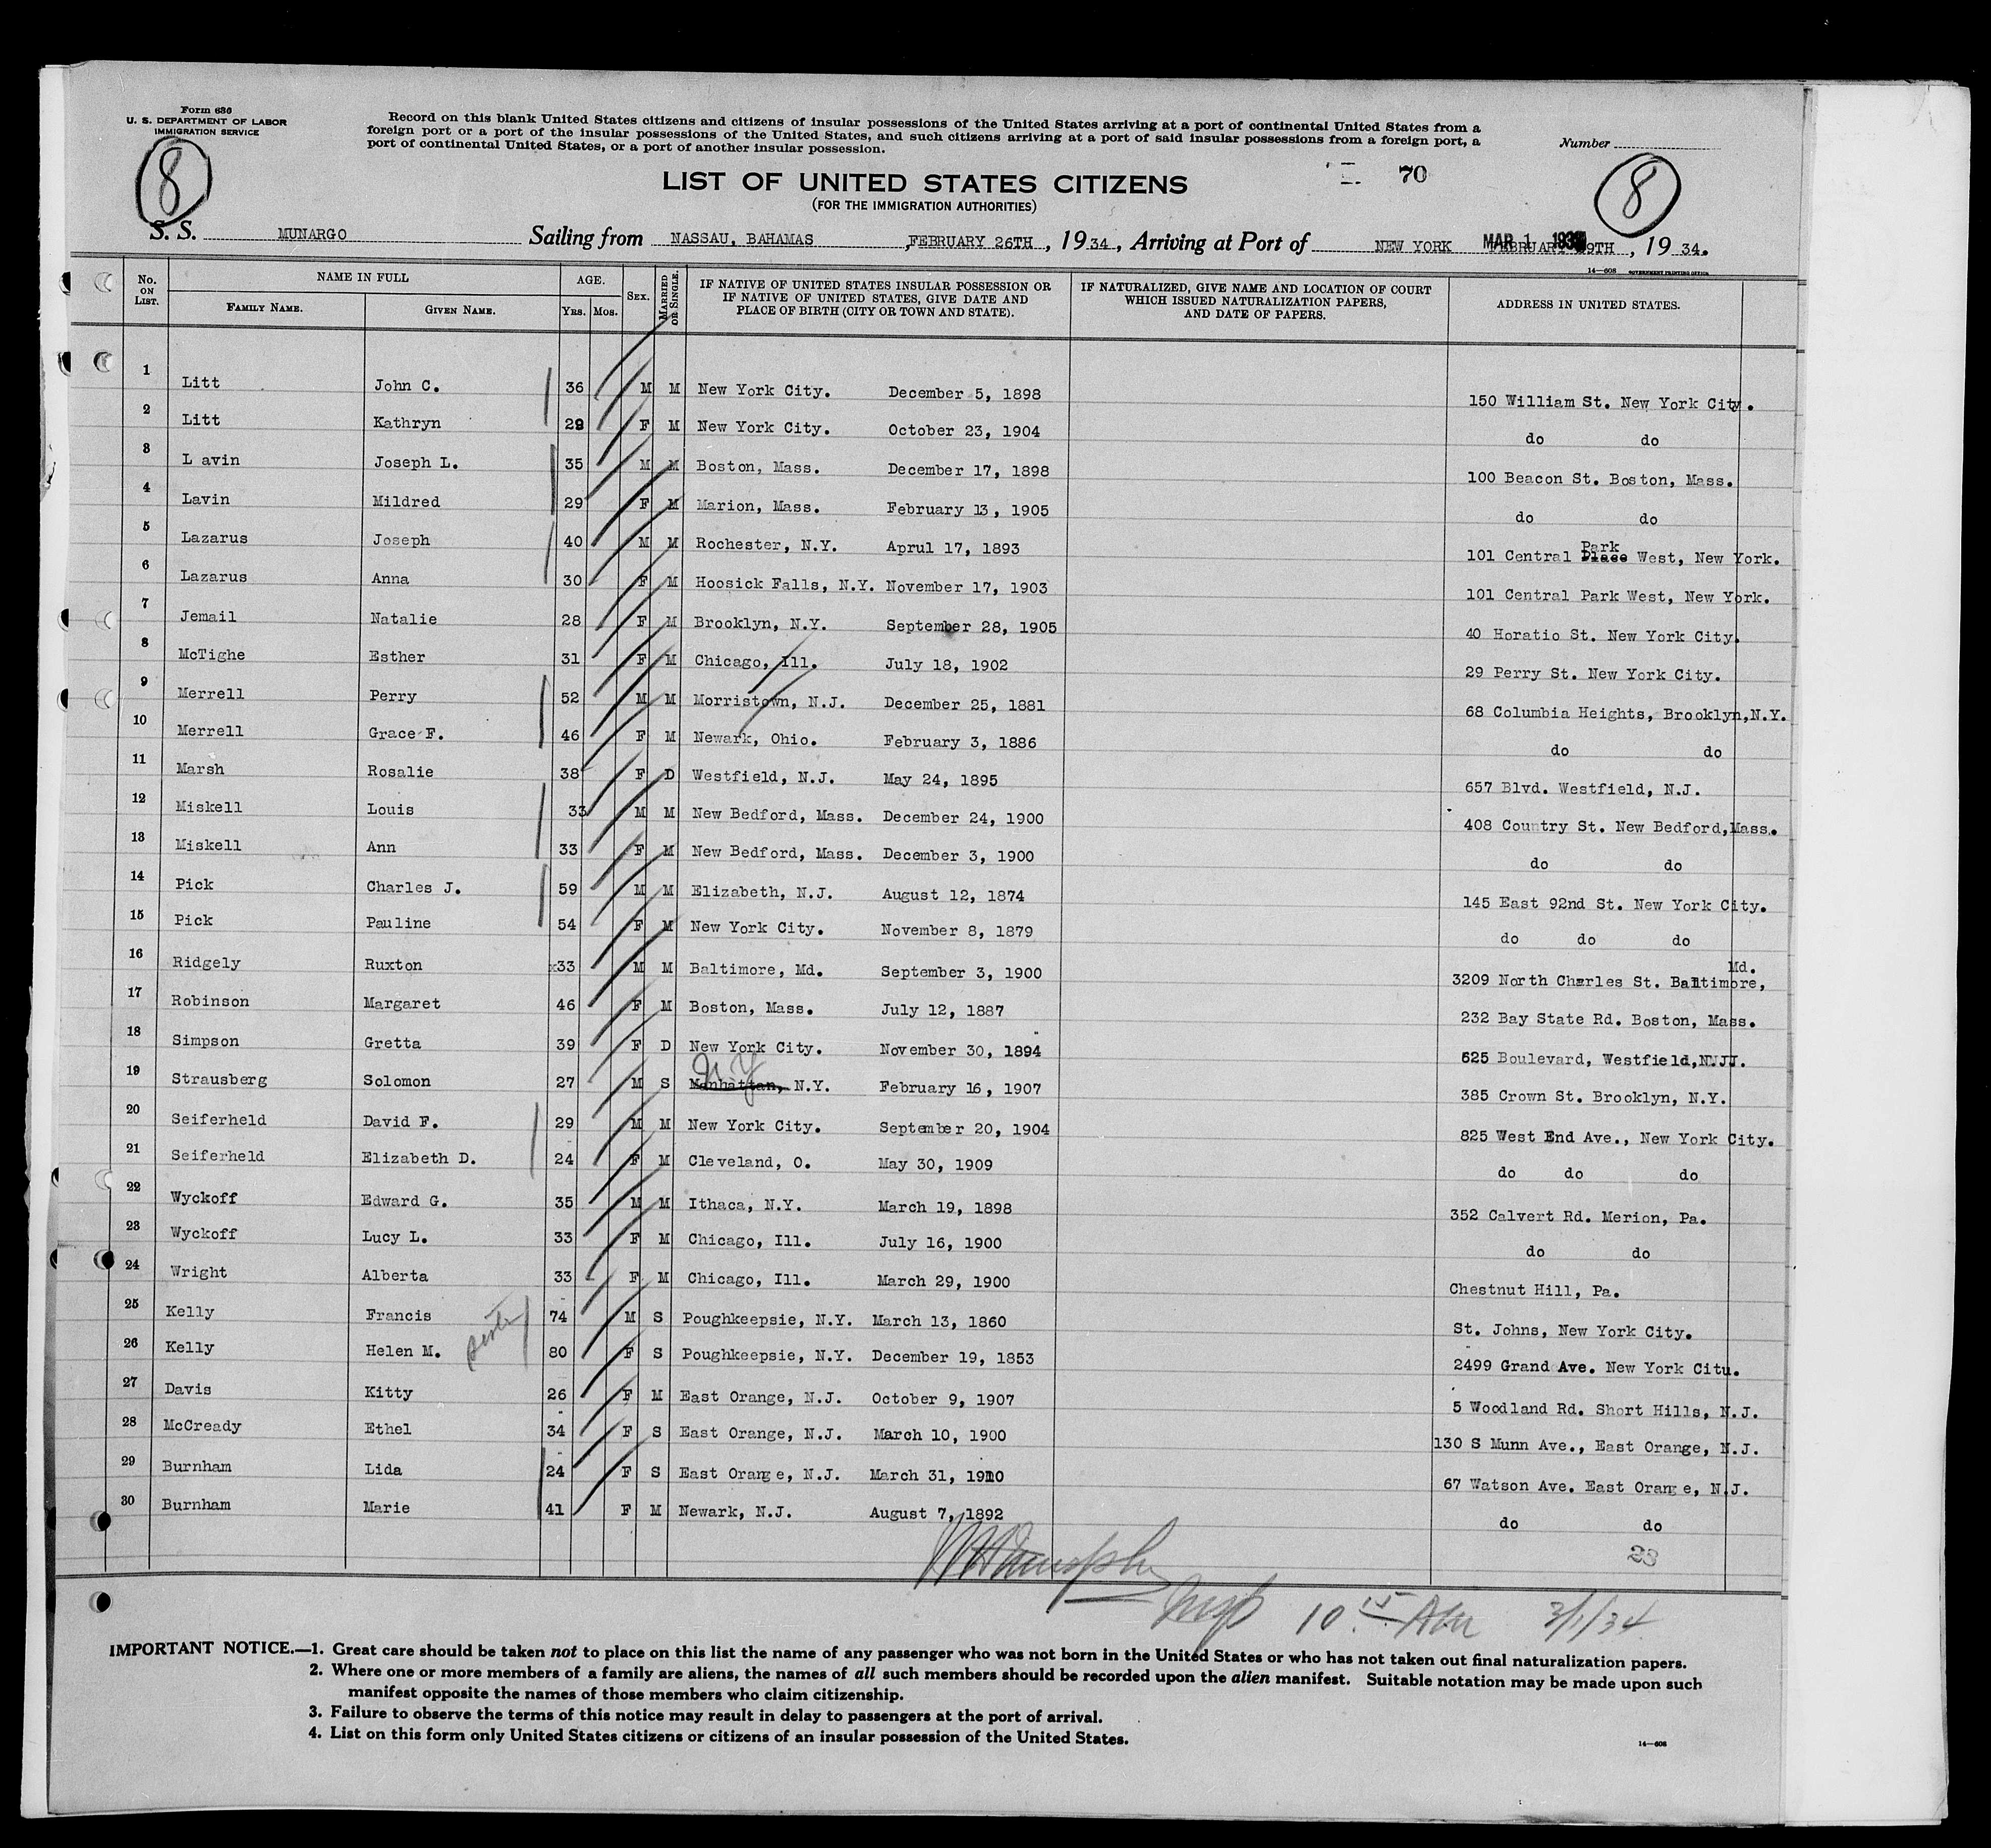 Form 630
U. S. DEPARTMENT OF LABOR
IMMIGRATION SERVICE
Record on this blank United States citizens and citizens of insular possessions of the United States arriving at a port of continental United States from a
foreign port or a port of the insular possessions of the United States, and such citizens arriving at a port of said insular possessions from a foreign port, a
port of continental United States, or a port of another insular possession.
Number
8
8
70
LIST OF UNITED STATES CITIZENS
(FOR THE IMMIGRATION AUTHORITIES)
S. S. MUNARGO Sailing from NASSAU, BAHAMAS, FEBRUARY 26TH, 1934, Arriving at Port of NEW YORK MAR 1 FEBRUARY, 1934.
14—608 GOVERNMENT PRINTING OFFICE
No. ON LIST. NAME IN FULL AGE. SEX. MARRIED OR SINGLE. IF NATIVE OF UNITED STATES INSULAR POSSESSION OR IF NATIVE OF UNITED STATES, GIVE DATE AND PLACE OF BIRTH (CITY OR TOWN AND STATE). IF NATURALIZED, GIVE NAME AND LOCATION OF COURT WHICH ISSUED NATURALIZATION PAPERS, AND DATE OF PAPERS. ADDRESS IN UNITED STATES.
FAMILY NAME. GIVEN NAME. YRS. MOS.
1 Litt John C. 36 M M New York City. December 5, 1898 150 William St. New York City.
2 Litt Kathryn 29 F M New York City. October 23, 1904 do do
3 L avin Joseph L. 35 M M Boston, Mass. December 17, 1898 100 Beacon St. Boston, Mass.
4 Lavin Mildred 29 F M Marion, Mass. February 13, 1905 do do
5 Lazarus Joseph 40 M M Rochester, N.Y. Aprul 17, 1893 101 Central Place Park West, New York.
6 Lazarus Anna 30 F M Hoosick Falls, N.Y. November 17, 1903 101 Central Park West, New York.
7 Jemail Natalie 28 F M Brooklyn, N.Y. September 28, 1905 40 Horatio St. New York City.
8 McTighe Esther 31 F M Chicago, Ill. July 18, 1902 29 Perry St. New York City.
9 Merrell Perry 52 M M Morristown, N.J. December 25, 1881 68 Columbia Heights, Brooklyn,N.Y.
10 Merrell Grace F. 46 F M Newark, Ohio. February 3, 1886 do do
11 Marsh Rosalie 38 F D Westfield, N.J. May 24, 1895 657 Blvd. Westfield, N.J.
12 Miskell Louis 33 M M New Bedford, Mass. December 24, 1900 408 Country St. New Bedford,Mass.
13 Miskell Ann 33 F M New Bedford, Mass. December 3, 1900 do do
14 Pick Charles J. 59 M M Elizabeth, N.J. August 12, 1874 145 East 92nd St. New York City.
15 Pick Pauline 54 F M New York City. November 8, 1879 do do do
16 Ridgely Ruxton x33 M M Baltimore, Md. September 3, 1900 3209 North Charles St. Baltimore, Md.
17 Robinson Margaret 46 F M Boston, Mass. July 12, 1887 232 Bay State Rd. Boston, Mass.
18 Simpson Gretta 39 F D New York City. November 30, 1894 625 Boulevard, Westfield,N.J.
19 Strausberg Solomon 27 M S Manhattan, N.Y. N.Y. February 16, 1907 385 Crown St. Brooklyn, N.Y.
20 Seiferheld David F. 29 M M New York City. September 20, 1904 825 West End Ave., New York City.
21 Seiferheld Elizabeth D. 24 F M Cleveland, O. May 30, 1909 do do do
22 Wyckoff Edward G. 35 M M Ithaca, N.Y. March 19, 1898 352 Calvert Rd. Merion, Pa.
23 Wyckoff Lucy L. 33 F M Chicago, Ill. July 16, 1900 do do
24 Wright Alberta 33 F M Chicago, Ill. March 29, 1900 Chestnut Hill, Pa.
25 Kelly Francis 74 M S Poughkeepsie, N.Y. March 13, 1860 St. Johns, New York City.
26 Kelly Helen M. sister 80 F S Poughkeepsie, N.Y. December 19, 1853 2499 Grand Ave. New York Citu.
27 Davis Kitty 26 F M East Orange, N.J. October 9, 1907 5 Woodland Rd. Short Hills, N.J.
28 McCready Ethel 34 F S East Orange, N.J. March 10, 1900 130 S Munn Ave., East Orange, N.J.
29 Burnham Lida 24 F S East Orange, N.J. March 31, 1910 67 Watson Ave. East Orange, N.J.
30 Burnham Marie 41 F M Newark, N.J. August 7, 1892 do do
23
10 15 AM 3/1/34
IMPORTANT NOTICE.—1. Great care should be taken not to place on this list the name of any passenger who was not born in the United States or who has not taken out final naturalization papers.
2. Where one or more members of a family are aliens, the names of all such members should be recorded upon the alien manifest. Suitable notation may be made upon such
manifest opposite the names of those members who claim citizenship.
3. Failure to observe the terms of this notice may result in delay to passengers at the port of arrival.
4. List on this form only United States citizens or citizens of an insular possession of the United States.
14—608